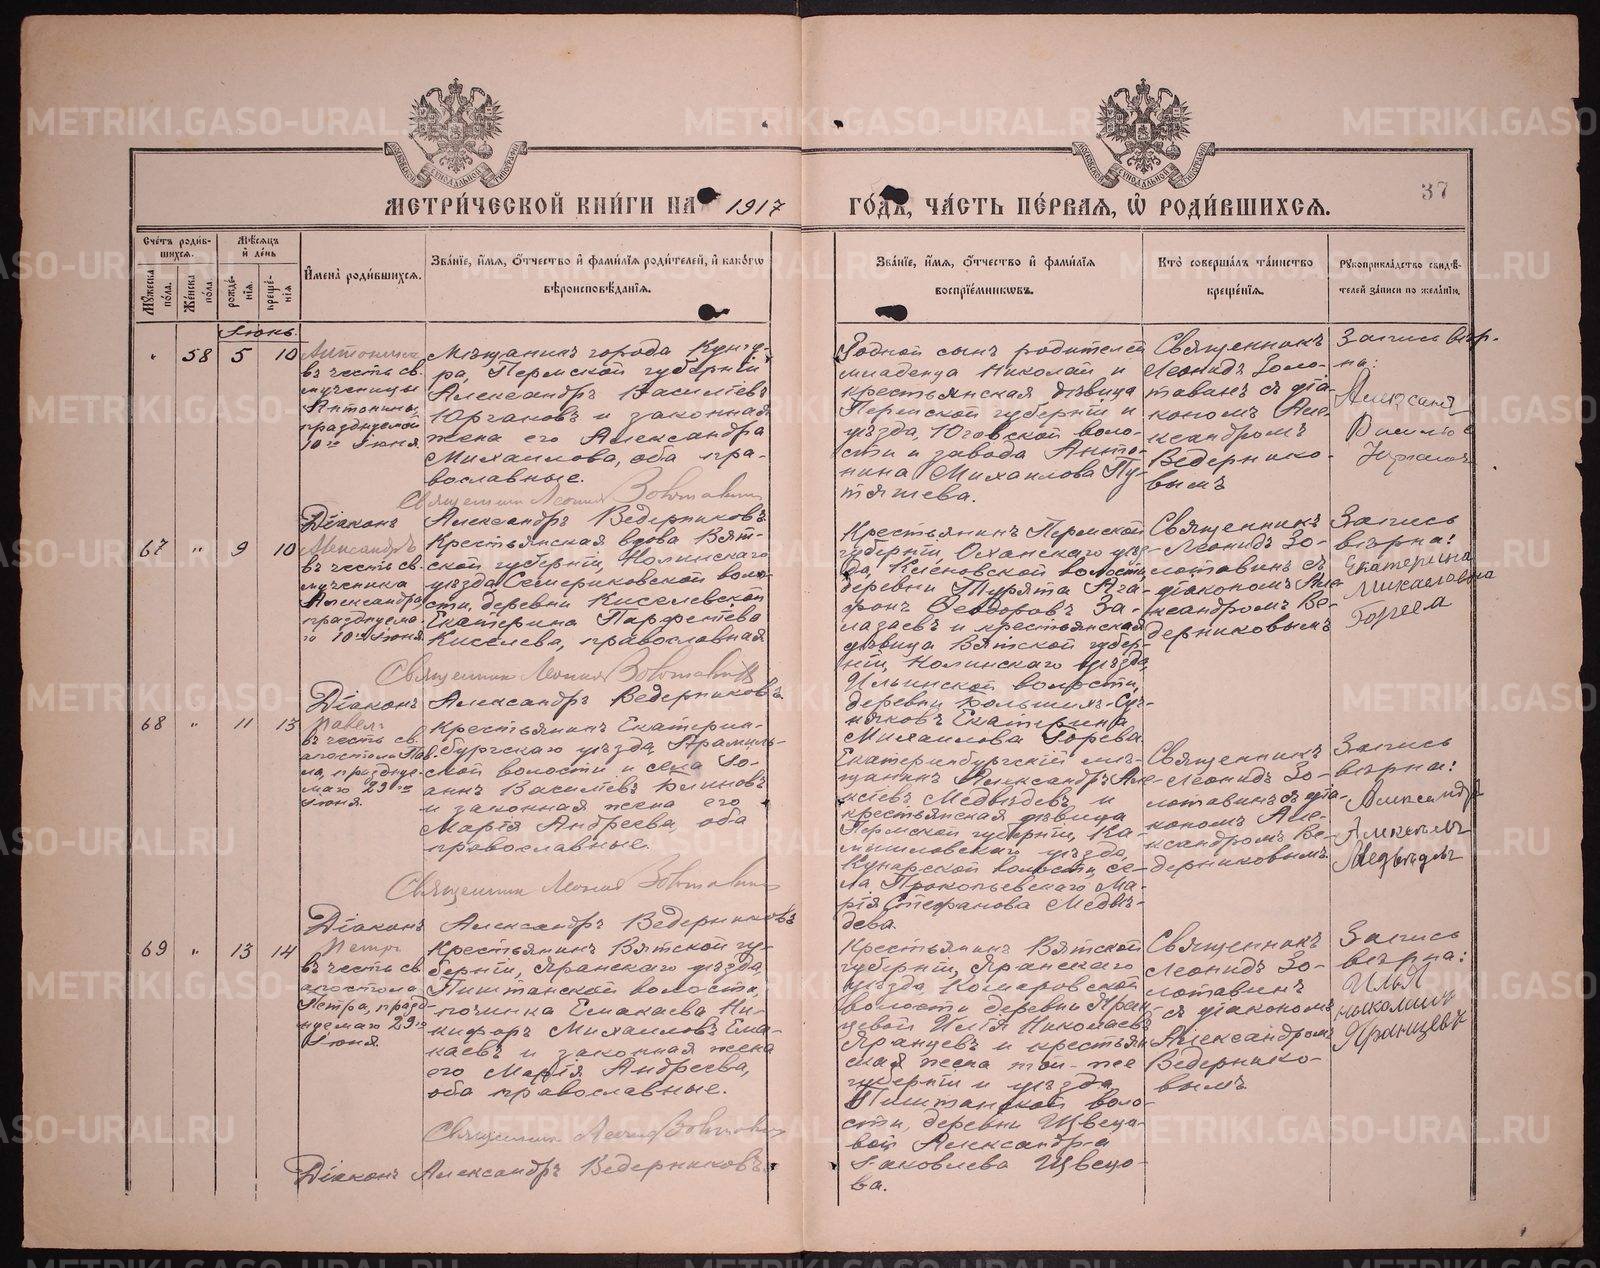 МЕТРИ́ЧЕСКОЙ КНИ́ГИ НА 1917
ГО́ДЪ, ЧА́СТЬ ПЕ́РВАЯ, Ѡ РОДИ́ВШИХСЯ.
37
Сче́тъ роди́в-
шихся.
Мѣ́сяцъ
и де́нь
Му́жеска
по́ла.
Же́нска
по́ла.
рожде́-
нїя.
креще́-
нїя.
Имена̀ роди́вшихся.
Зва́нїе, и́мя, ѻ́тчество и фами́лїя роди́телей, и како́гѡ
вѣроисповѣ́данїя.
Зва́нїе, и́мя, ѻ́тчество и фами́лїя
воспрїе́мникѡвъ.
Кто̀ соверша́лъ та́инство
креще́нїя.
Рꙋкоприкла́дство свидѣ́-
телей за́писи по жела́нїю.
Іюнь.
" 58 5 10
Антонина
въ честь св.
мученицы
Антонины,
празднуемой
10го Іюня
Мѣщанинъ города Кунгу-
ра, Пермской губерніи
Александръ Васильевъ
Юргановъ и законная
жена его Александра
Михаилова, оба пра-
вославные.
Священникъ Леонидъ Золотавинъ
Діаконъ Александръ Ведерниковъ
Родной сынъ родителей
младенца Николай и
крестьянская дѣвица
Пермской губерніи и
уѣзда, Юговской воло-
сти и завода Анто-
нина Михаилова Пу-
тяшева.
Священникъ
Леонидъ Золо-
тавинъ съ діа-
кономъ Але-
ксандромъ
Ведернико-
вымъ
Запись вѣр-
на:
67 " 9 10
Александръ
въ честь св.
мученика
Александра,
празднуема-
го 10го Іюня
Крестьянская вдова Вят-
ской губерніи, Нолинскаго
уѣзда, Семериковской воло-
сти, деревни Киселевской
Екатерина Парфетева
Киселева, православная
Священникъ Леонидъ Золотавинъ
Діаконъ Александръ Ведерниковъ
Крестьянинъ Пермской
губерніи, Оханскаго уѣз-
да, Кленовской волости,
деревни Турята Ага-
фонъ Ѳеодоровъ За-
лазаевъ и крестьянская
дѣвица Вятской губер-
ніи, Нолинскаго уѣзда
Ильинской волости,
деревни Большихъ-Суч-
няковъ Екатерина
Михаилова Горева.
Священникъ
Леонидъ Зо-
лотавинъ съ
діакономъ Але-
ксандромъ Ве-
дерниковымъ
Запись
вѣрна:
Екатерина
Михаиловна
Горева
68 " 11 13
Павелъ
въ честь св.
апостола Пав-
ла, праздуе-
маго 29го
Іюня.
Крестьянинъ Екатерин-
бургскаго уѣзда, Арамиль-
ской волости и села Іо-
аннъ Васильевъ Блиновъ
и законная жена его
Марія Андреева, оба
православные.
Священникъ Леонидъ Золотавинъ
Діаконъ Александръ Ведерниковъ
Екатеринбургскій мѣ-
щанинъ Александръ Але-
ксѣевъ Медвѣдевъ и
крестьянская дѣвица
Пермской губерніи, Ка-
мышловскаго уѣзда,
Кунарской волости, се-
ла Прокопьевскаго Ма-
рія Стефанова Медвѣ-
дева.
Священникъ
Леонидъ Зо-
лотавинъ съ діа-
кономъ Але-
ксандромъ Ве-
дерниковымъ.
Запись
вѣрна:
Александръ
Алексѣевъ
Медвѣдевъ
69 " 13 14
Петръ
въ честь св.
апостола
Петра, празд-
нуемаго 29го
Іюня.
Крестьянинъ Вятской гу-
берніи, Яранскаго уѣзда,
Пиштанской волости,
починка Емакаева Ни-
кифоръ Михаиловъ Ема-
каевъ и законная жена
его Марія Андреева,
оба православные.
Священникъ Леонидъ Золотавинъ
Діаконъ Александръ Ведерниковъ
Крестьянинъ Вятской
губерніи, Яранскаго
уѣзда Комаровской
волости деревни Яран-
цевой Илія Николаевъ
Яранцевъ и крестьян-
ская жена той-же
губерніи и уѣзда
Пиштанской воло-
сти, деревни Швецо-
вой Александра
Іаковлева Швецо-
ва.
Священникъ
Леонидъ Зо-
лотавинъ
съ діакономъ
Александромъ
Ведернико-
вымъ
Запись
вѣрна:
Илья
Николаевъ
Яранцевъ
METRIKI.GASO-URAL.RU